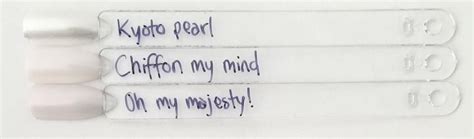 Kyoto pearl
Chiffon my mind
Oh my majesty!